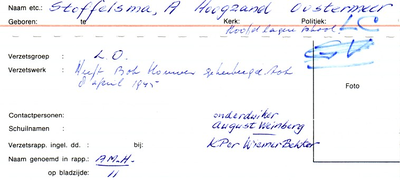 Naam etc.: Stoffelsma, A Hoogzand Oostermeer
Geboren: te Kerk: Politiek:
Hoofd Lagere School LC
Verzetsgroep : L.O.
Verzetswerk : Heeft Bob Houwen
2 april 1945
Foto
Contactpersonen: onderduiker
Schuilnaam : August Weinberg
Verzetsrapp. ingel. dd. : bij: KPer Wiemer Bekker
Naam genoemd in rapp.: A.M.H.
op bladzijde: 11